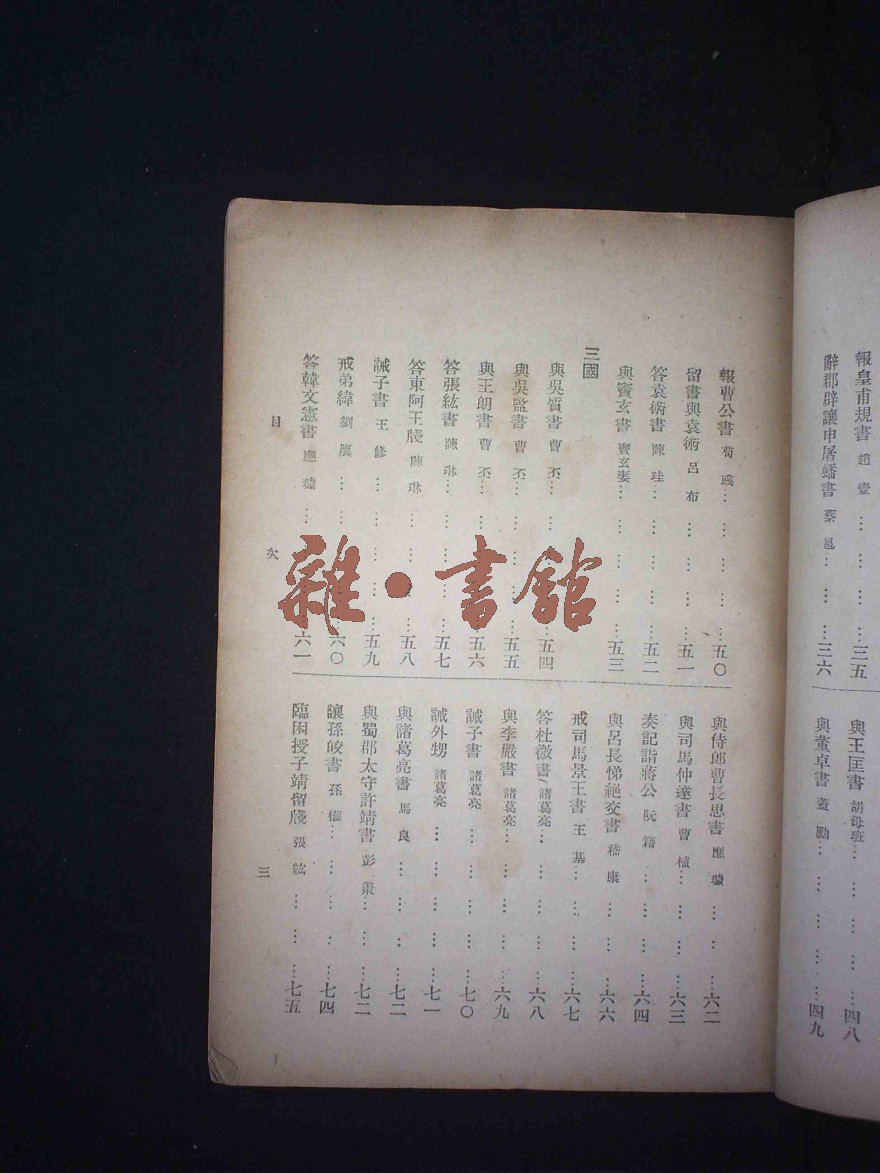 報皇甫規書 趙壹 … … … …三五
辭郡辟讓申屠蟠書 蔡邕… … … …三六
與王匡書 胡母班… … … … …四八
與董卓書 蓋勳… … … … …四九
報曹公書 荀彧… … … … …五〇
留書與袁術 呂布 … … … …五一
答袁術書 陳珪… … … … …五二
與竇玄書 竇玄妻… … … … …五三
三國
與吳質書 曹丕… … … … …五四
與吳監書 曹丕… … … … …五五
與王朗書 曹丕… … … … …五六
答張紘書 陳琳… … … … …五七
答東阿王牋 陳琳 … … … …五八
誡子書 王修 … … … … …五九
戒弟緯 劉廙 … … … … …六〇
答韓文憲書 應璩… … … … …六一
與侍郎曹長思書 應璩 … … … …六二
與司馬仲達書 曹植… … … … …六三
奏記詣蔣公 阮籍 … … … …六四
與呂長悌絕交書 嵇康 … … … …六六
戒司馬景王書 王基… … … … …六七
答杜微書 諸葛亮… … … … …六八
與李嚴書 諸葛亮… … … … …六九
誡子書 諸葛亮 … … … … …七〇
誡外甥 諸葛亮 … … … … …七一
與諸葛亮書 馬良 … … … …七二
與蜀郡太守許靖書 彭羕… … … …七二
讓孫皎書 孫權… … … … …七四
臨困授子靖留牋 張紘 … … … …七五
目次
三
雜·書館